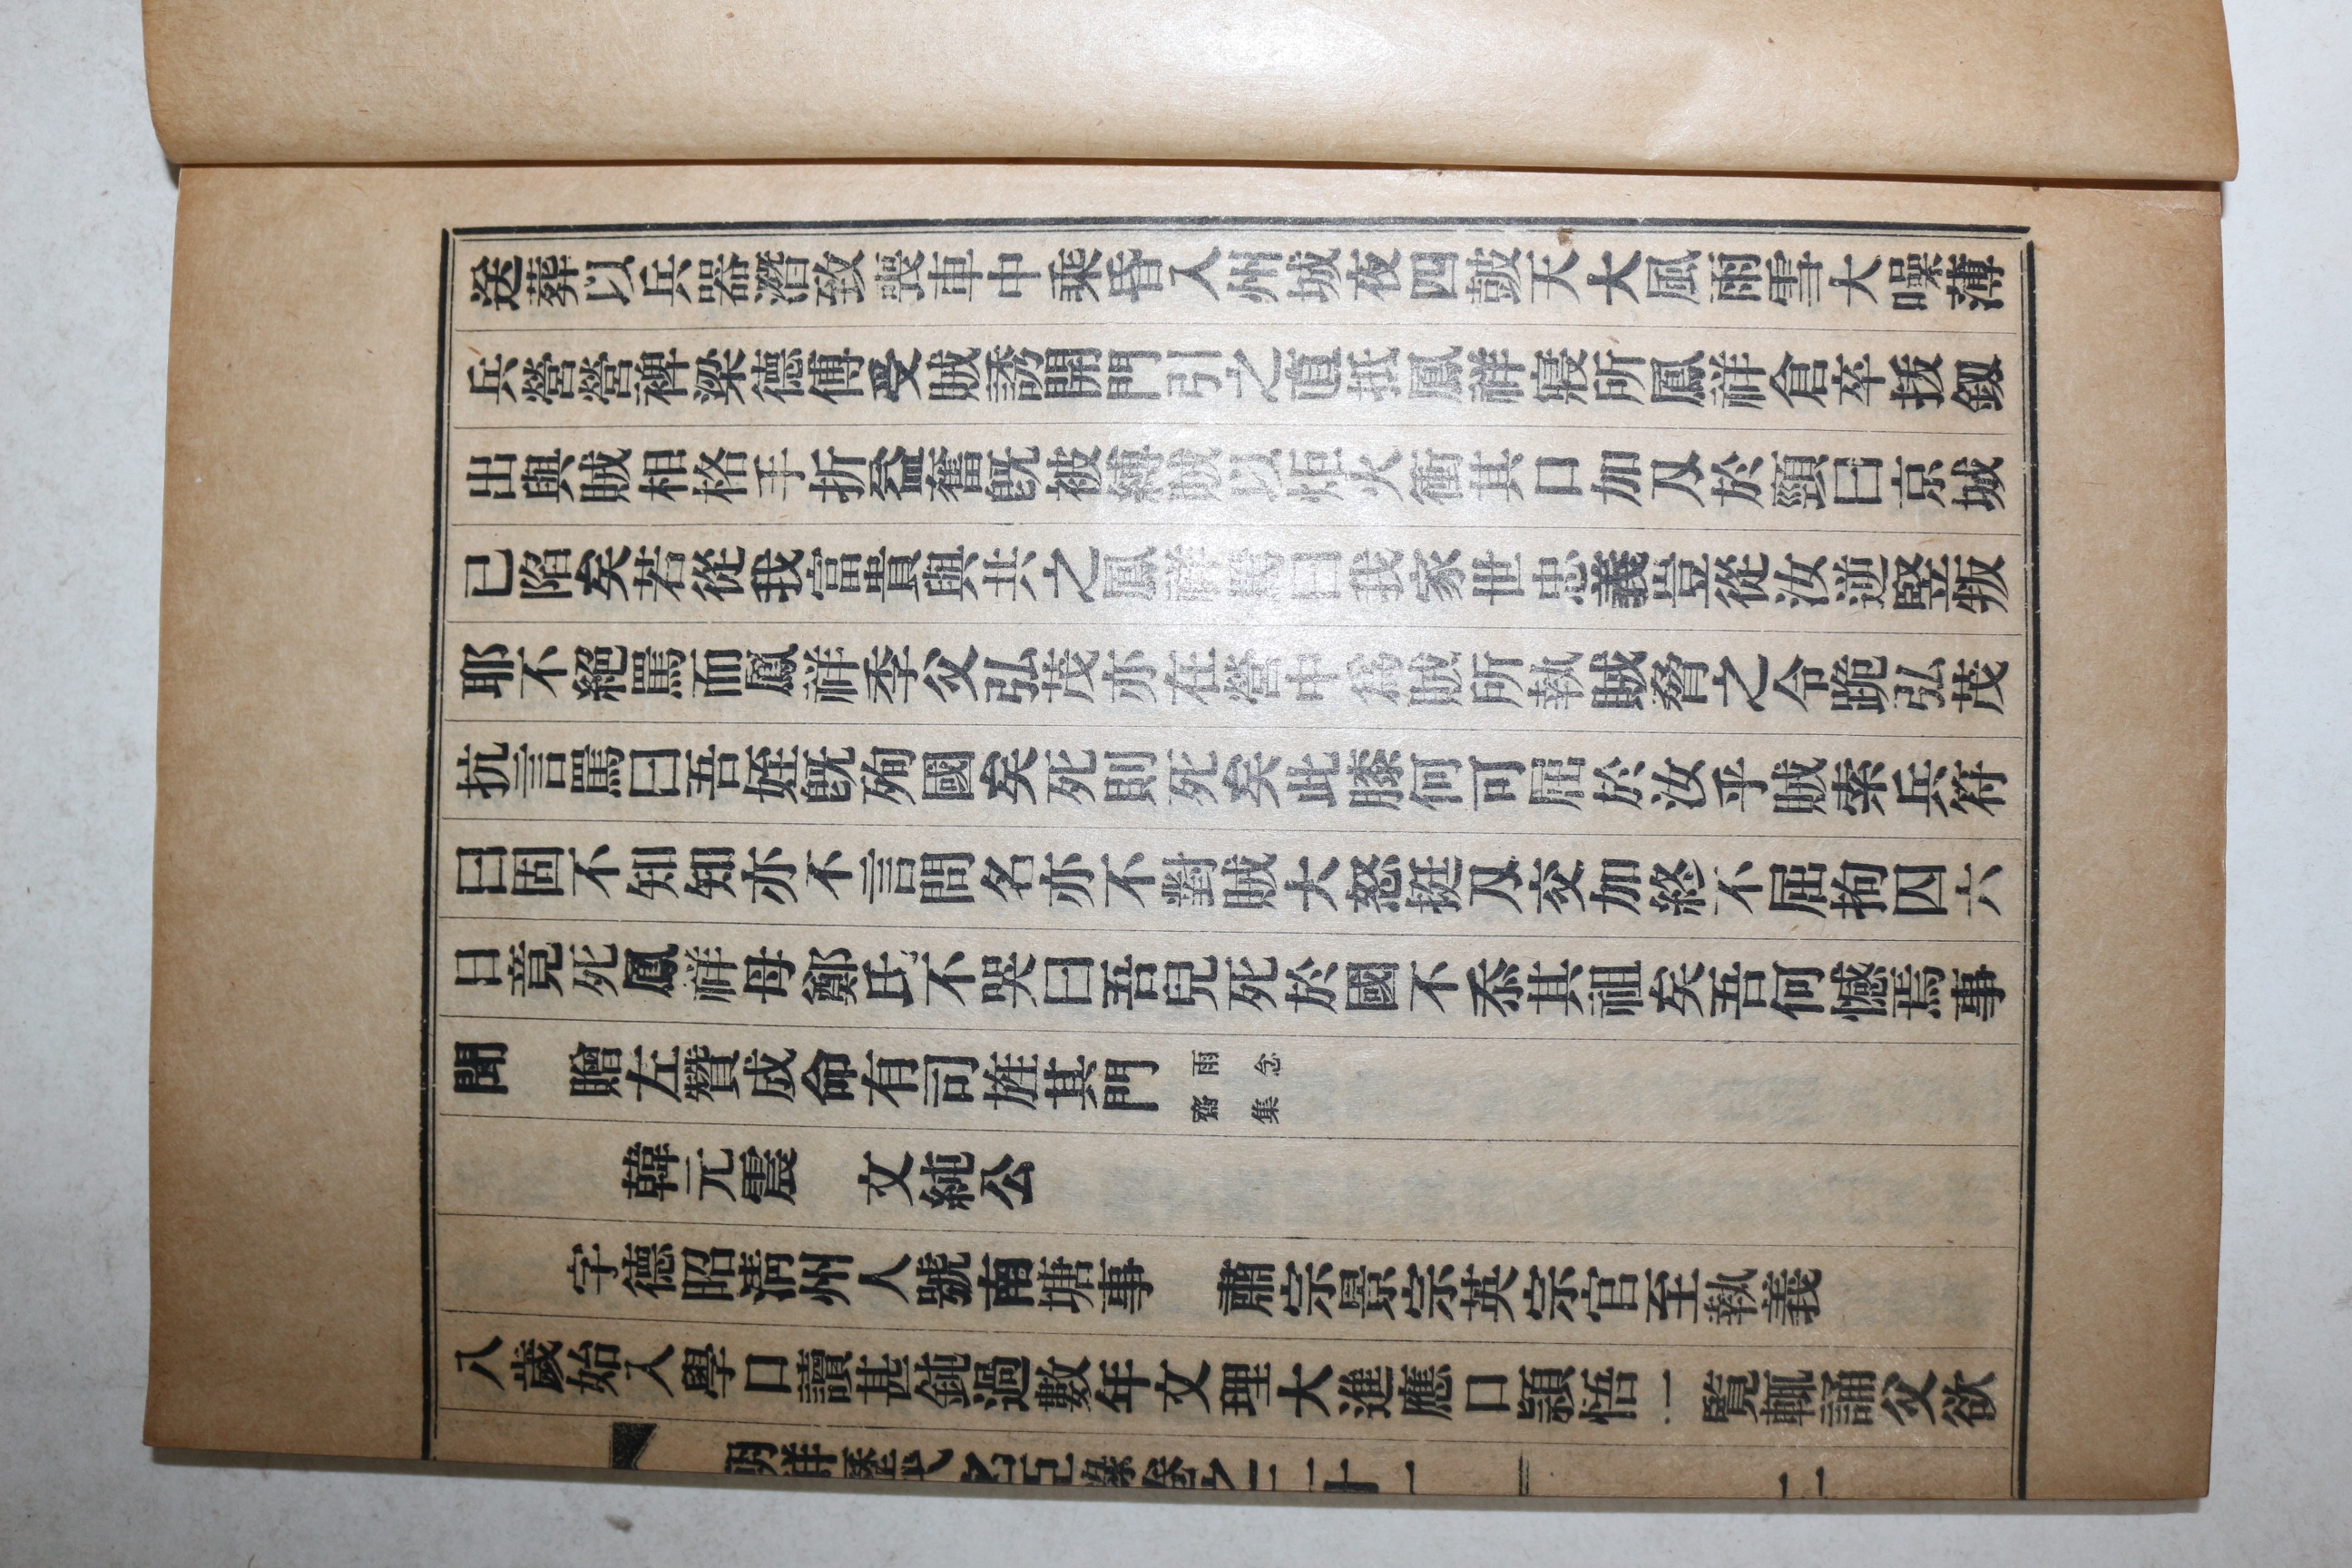 送葬以兵器潛致喪車中乘昏入州城夜四皷天大風雨雪大噪薄
兵營營裨梁德傅受賊誘開門引之直抵鳳祥寢所鳳祥倉卒拔釼
出與賊相格手折益奮旣被縛賊以炬火衝其口加刄於頸曰京城
已陷矣若從我富貴與共之鳳祥罵曰我家世忠義豈從汝逆竪叛
耶不絕罵而鳳祥季父弘茂亦在營中爲賊所執賊脅之令跪弘茂
抗言罵曰吾姪旣殉國矣死則死矣此膝何可屈於汝乎賊索兵符
曰固不知知亦不言問名亦不對賊大怒挺刄交加終不屈拘囚六
日竟死鳳祥母鄭氏不哭曰吾兒死於國不忝其祖矣吾何憾焉事
聞 贈左贊成命有司旌其門 雨念齋集
韓元震 文純公
字德昭淸州人號南塘事 肅宗景宗英宗官至執義
八歲始入學口讀甚鈍過數年文理大進應口頴悟一覧輒誦父欲
朝鮮歷代名臣錄卷之二十一 二